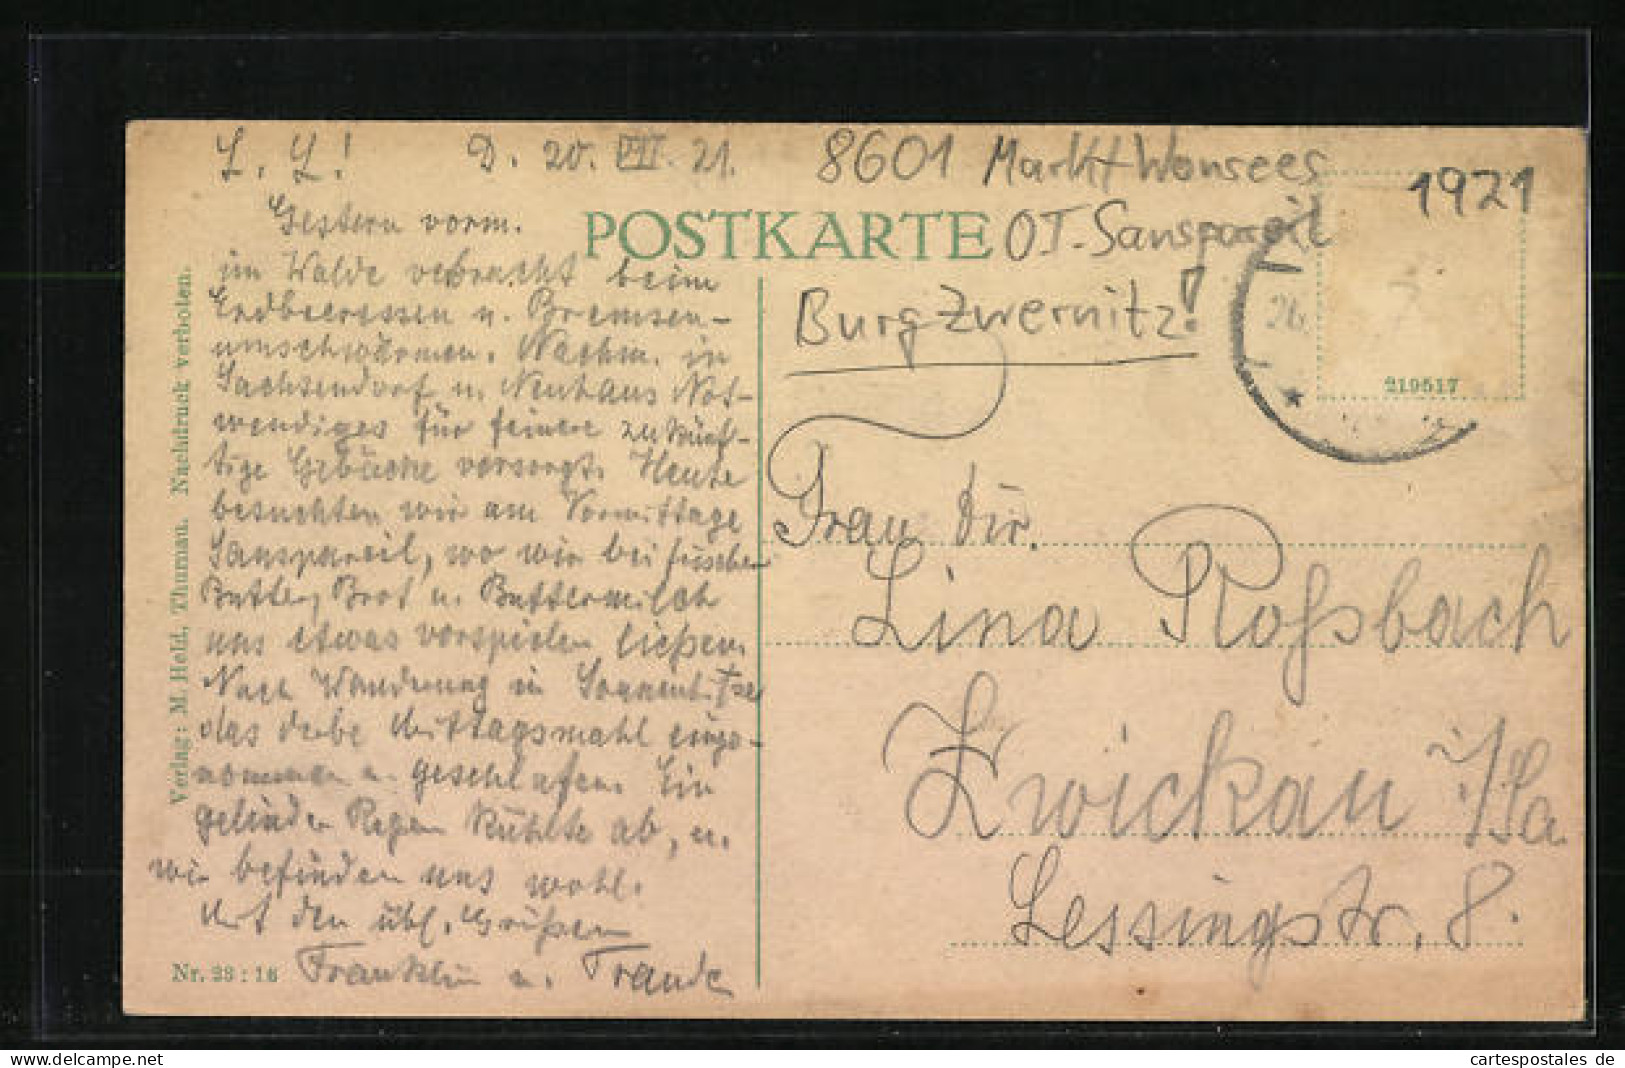 L. L.! D. 20. VII. 21.
Gestern vorm.
im Walde verbracht beim
Erdbeeressen u. Bremsen-
umschwärmen. Nachm. in
Sachsendorf u. Neuhaus Not-
wendiges für feinere zukünf-
tige Gebäcke versorgt. Heute
besuchten wir am Vormittage
Sanspareil, wo wir bei frischer
Butter, Brot u. Buttermilch
uns etwas vorspielen ließen.
Nach Wanderung in Sonnenhitze
das derbe Mittagsmahl einge-
nommen u. geschlafen. Ein
gelinder Regen kühlte ab, u.
wir befinden uns wohl.
Mit den übl. Grüßen
Franklin u. Traude
8601 Markt Wonsees
1921
POSTKARTE
OT-Sanspareil
Burg Zwernitz!
219517
Frau Dir.
Lina Roßbach
Zwickau i/Sa.
Lessingstr. 8.
Verlag: M. Held, Thurnau. Nachdruck verboten.
Nr. 28:16
cartespostales de